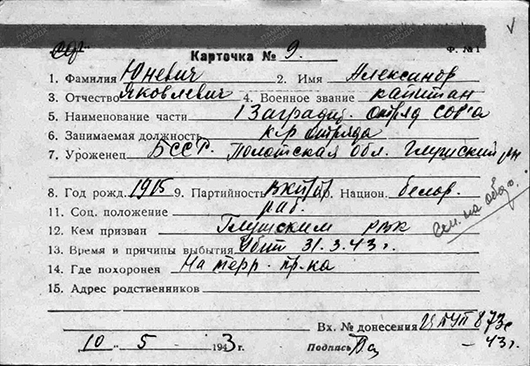 Карточка № 9.
Ф. № 1
1. Фамилия Юневич 2. Имя Александр
3. Отчество Яковлевич 4. Военное звание капитан
5. Наименование части 1 Заградит. отряд
6. Занимаемая должность к-р отряда
7. Уроженец БССР. Полотская обл. Глушский рн
8. Год рожд. 1905 9. Партийность ВКП/б/ 10. Национ. белор.
11. Соц. положение раб.
12. Кем призван Глушским РВК
13. Время и причины выбытия Убит 31.3.43 г.
14. Где похоронен На терр. пр-ка
15. Адрес родственников
см. на обор.
Вх. № донесения ЦПУП 873с
- 43 г.
10 - 5 1943 г. Подпись